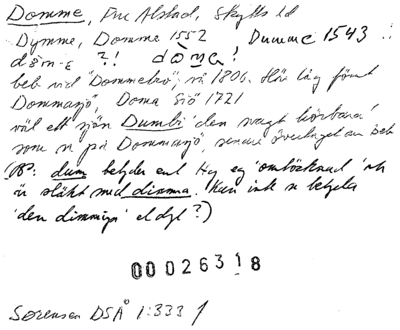 Domme, Fru Alstad, Skytts hd
Dymme, Domme 1552 Dumme 1543
døm-ε ?! dòma!
beb vid "Dommebro", nä 1806. Här låg förut
Dommasjö, Doma Siö 1721
väl ett sjön Dumbi 'den svagt hörbara'
som n på Dommasjö, senare överflyttat an beb
(Pp: dum betyder enl Hq eg 'omtöcknad' och
är släkt med dimma. Kan inte n betyda
'den dimmiga' el dyl?)
00026318
Sörensen DSÅ 1:333 f